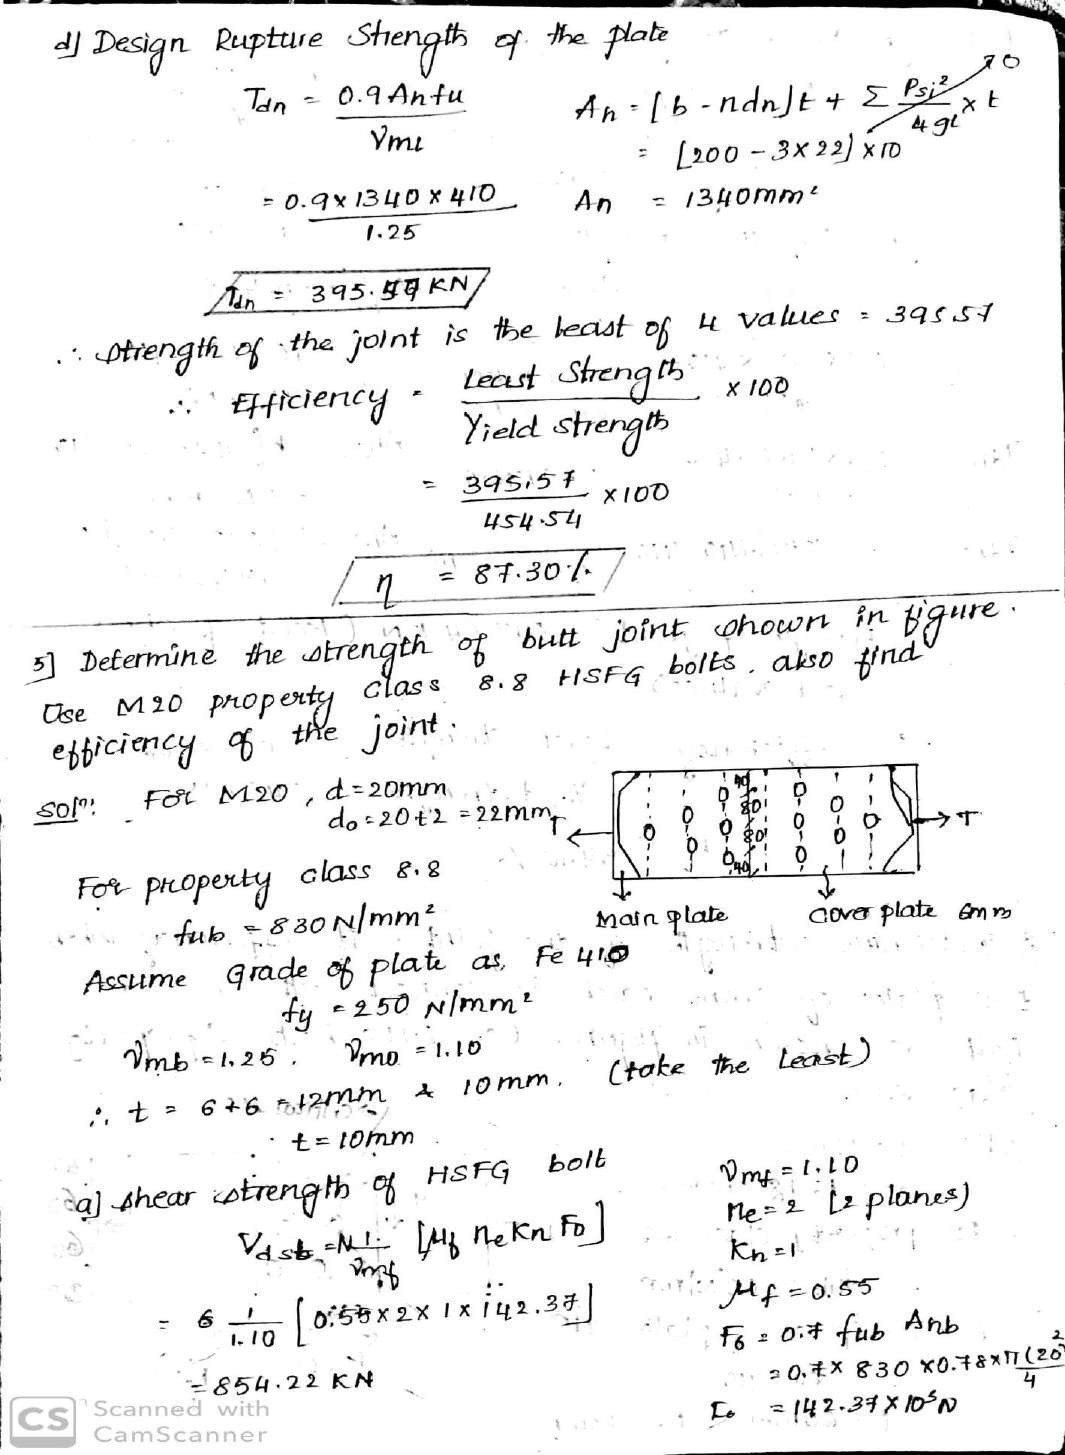 d] Design Rupture Strength of the plate
Tdn = 0.9 An fu / γm1
An = [b - ndn]t + Σ Psi² / 4gi × t → 0
= [200 - 3×22] × 10
= 0.9 × 1340 × 410 / 1.25
An = 1340mm²
Tdn = 395.57 KN
∴ strength of the joint is the least of 4 values = 395.57
∴ Efficiency = Least Strength / Yield strength × 100
= 395.57 / 454.54 × 100
η = 87.30%
5] Determine the strength of butt joint shown in figure.
Use M20 property class 8.8 HSFG bolts. also find
efficiency of the joint.
Solⁿ: For M20, d = 20mm
do = 20+2 = 22mm
T
T
40
80
80
40
Main plate
cover plate 6mm
For property class 8.8
fub = 830 N/mm²
Assume grade of plate as, Fe 410
fy = 250 N/mm²
γmb = 1.25. γmo = 1.10
∴ t = 6+6 = 12mm & 10mm. (take the least)
t = 10mm
a] shear strength of HSFG bolt
γmf = 1.10
Vdsf = N 1/γmf [μf ne Kn Fo]
ne = 2 [2 planes)
Kn = 1
= 6 1/1.10 [0.55 × 2 × 1 × 142.37]
μf = 0.55
Fo = 0.7 fub Anb
= 854.22 KN
= 0.7 × 830 × 0.78 × π(20)²/4
Fo = 142.37 × 10³ N
CS Scanned with
CamScanner